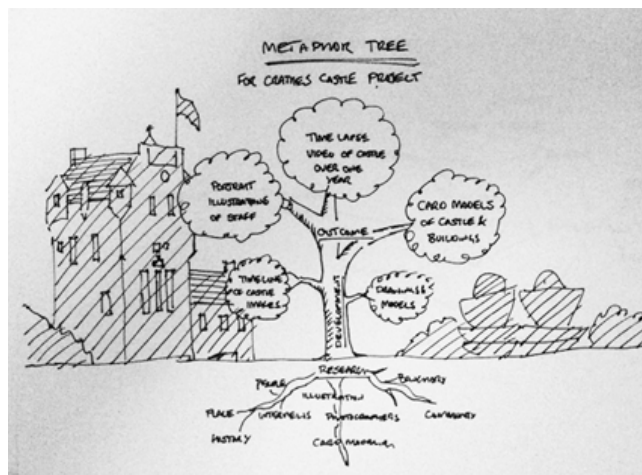 METAPHOR TREE
FOR CRATHES CASTLE PROJECT
TIME LAPSE
VIDEO OF CASTLE
OVER ONE
YEAR
PORTRAIT
ILLUSTRATIONS
OF STAFF
CARD MODELS
OF CASTLE &
BUILDINGS
OUTCOME
TIMELINE
OF CASTLE
IMAGES
DRAWINGS &
MODELS
DEVELOPMENT
RESEARCH
PEOPLE
ILLUSTRATION
PLACE
INTERVIEWS
PHOTOGRAPHERS
COMMUNITY
HISTORY
CARD MODELLING